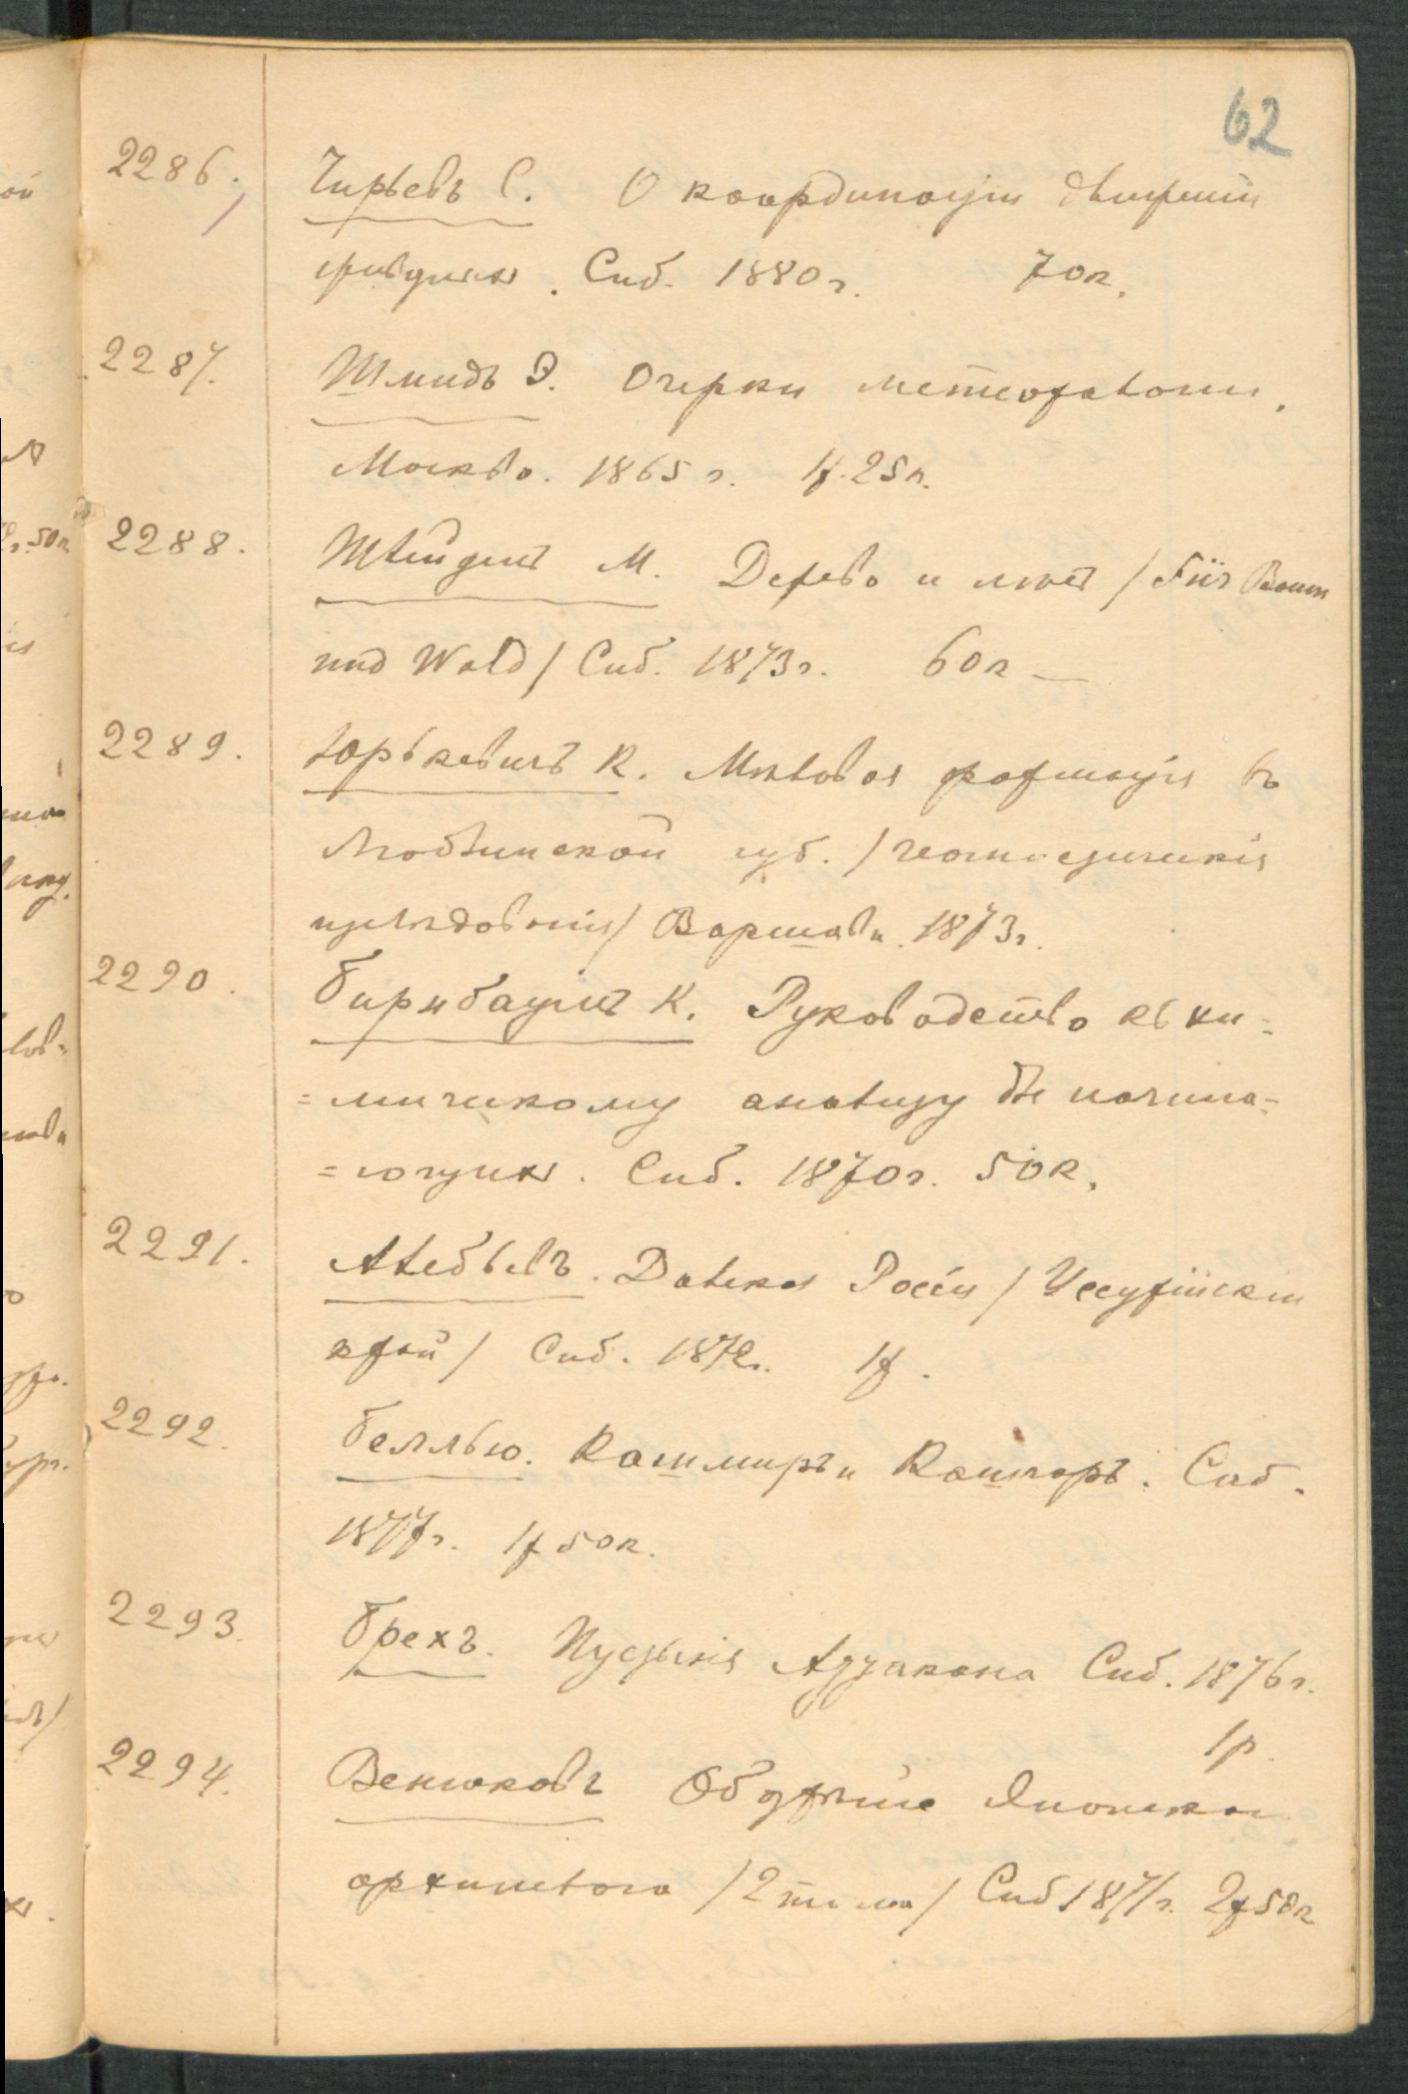 62
2286. Чирьевъ С. О координаціи движеній
животныхъ. Спб. 1880 г. 70 к.
2287. Шмидъ Э. Очерки метеорологіи.
Москва. 1865 г. 1 р. 25 к.
2288. М. Дерево и лѣсъ / Für Baum
und Wald / Спб. 1873 г. 60 к
2289. Юрькевичъ К. Мѣловая формація въ
Люблинской губ. / геогностическія
изслѣдованія / Варшава. 1873 г.
2290. Бирнбаумъ К. Руководство къ хи=
=мическому анализу для начина=
=ющихъ. Спб. 1870 г. 50 к.
2291. Алябьевъ. Далекая Россія / Уссурійскій
край / Спб. 1872 г. 1 р.
2292. Беллью. Кашмиръ и Кашгаръ. Спб.
1877 г. 1 р 50 к.
2293. Брехъ. Спб. 1876 г.
1 р.
2294. Венюковъ Обозрѣніе Японскаго
архипелага / 2 тома / Спб 1871 г. 2 р 50 к